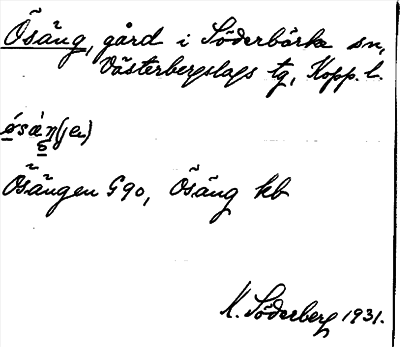 Ösäng, gård i Söderbärke sn,
Västerbergslags tg, Kopp. l.
Ösängen G90, Ösäng kb
K. Söderberg 1931.